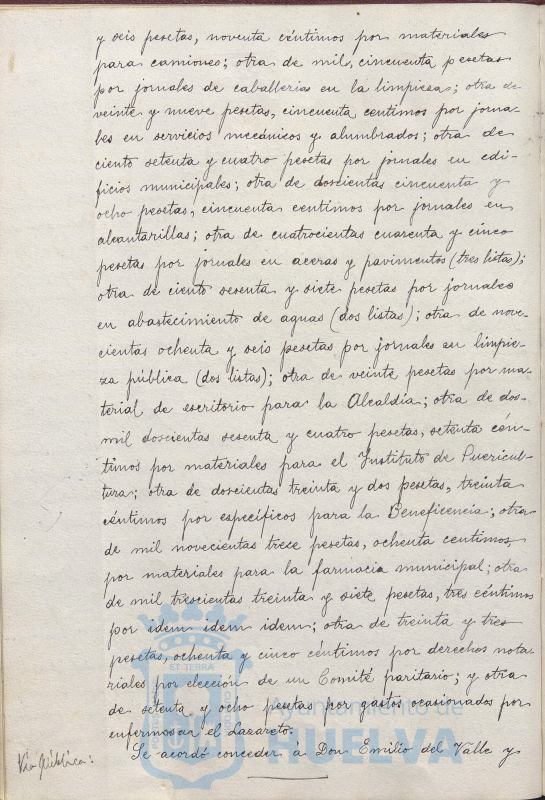 y seis pesetas, noventa céntimos por materiales
para camiones; otra de mil, cincuenta pesetas
por jornales de caballerias en la limpieza; otra de
veinte y nueve pesetas, cincuenta centimos por jorna-
les en servicios mecánicos y alumbrados; otra de
ciento setenta y cuatro pesetas por jornales en edi-
ficios municipales; otra de doscientas cincuenta y
ocho pesetas, cincuenta centimos por jornales en
alcantarillas; otra de cuatrocientas cuarenta y cinco
pesetas por jornales en aceras y pavimentos (tres listas);
otra de ciento sesenta y siete pesetas por jornales
en abastecimiento de aguas (dos listas); otra de nove-
cientas ochenta y seis pesetas por jornales en limpie-
za pública (dos listas); otra de veinte pesetas por ma-
terial de escritorio para la Alcaldía; otra de dos-
mil doscientas sesenta y cuatro pesetas, setenta cén-
timos por materiales para el Instituto de Puericul-
tura; otra de doscientas treinta y dos pesetas, treinta
céntimos por específicos para la Beneficencia; otra
de mil novecientas trece pesetas, ochenta centimos,
por materiales para la farmacia municipal; otra
de mil trescientas treinta y siete pesetas, tres céntimos
por idem idem idem; otra de treinta y tres
pesetas, ochenta y cinco céntimos por derechos nota-
riales por elección de un Comité paritario; y otra
de setenta y ocho pesetas por gastos ocasionados por
enfermos en el Lazareto.
Via pública: Se acordó conceder á Don Emilio del Valle y
ET TERRA
Ayuntamiento de
HUELVA